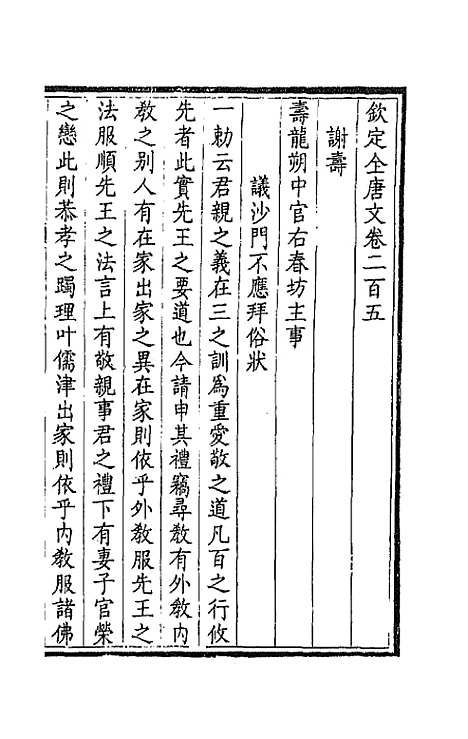 欽定全唐文卷二百五
謝壽
壽龍朔中官右春坊主事
議沙門不應拜俗狀
一勅云君親之義在三之訓為重愛敬之道凡百之行攸
先者此實先王之要道也今請申其禮竊尋教有外教內
教之別人有在家出家之異在家則依乎外教服先王之
法服順先王之法言上有敬親事君之禮下有妻子官榮
之戀此則恭孝之躅理叶儒津出家則依乎內教服諸佛